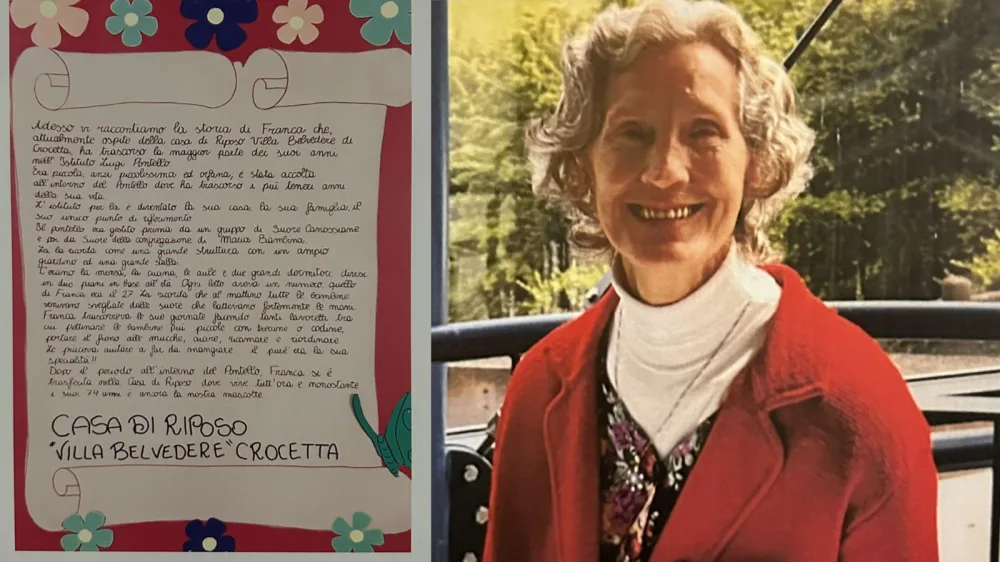 Adesso vi raccontiamo la storia di Franca che,
attualmente ospite della casa di Riposo Villa Belvedere di
Crocetta, ha trascorso la maggior parte dei suoi anni
nell' Istituto Luigi Pontello.
Era piccola, anzi piccolissima ed orfana, è stata accolta
all'interno del Pontello dove ha trascorso i più teneri anni
della sua vita.
L' istituto per lei è diventato la sua casa, la sua famiglia, il
suo unico punto di riferimento.
Il pontello era gestito prima da un gruppo di Suore Canossiane
e poi da Suore della congregazione di Maria Bambina.
Lei la ricorda come una grande struttura con un ampio
giardino ed una grande stalla.
C'erano la mensa, la cucina, le aule e due grandi dormitori divisi
in due piani in base all'età. Ogni letto aveva un numero, quello
di Franca era il 27. La ricorda che al mattino tutte le bambine
venivano svegliate dalle suore che battevano fortemente le mani.
Franca trascorreva le sue giornate facendo tanti lavoretti tra
cui pettinare le bambine più piccole con treccine o codine,
portare il fieno alle mucche, cucire, ricamare e riordinare.
Le piaceva aiutare a far da mangiare il purè era la sua
specialità!!
Dopo il periodo all'interno del Pontello, Franca si è
trasferita nella Casa di Riposo dove vive tutt'ora e nonostante
i suoi 79 anni è ancora la nostra mascotte.
CASA DI RIPOSO
"VILLA BELVEDERE" CROCETTA